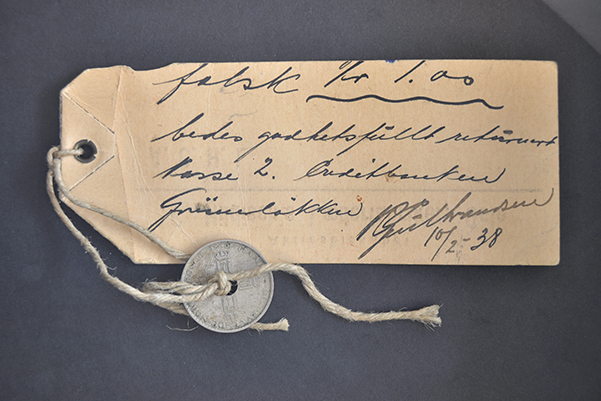 falsk Kr 1.00
bedes godhetsfullt returnert
Kasse 2. Creditbanken
Grünerløkken
10/2-38